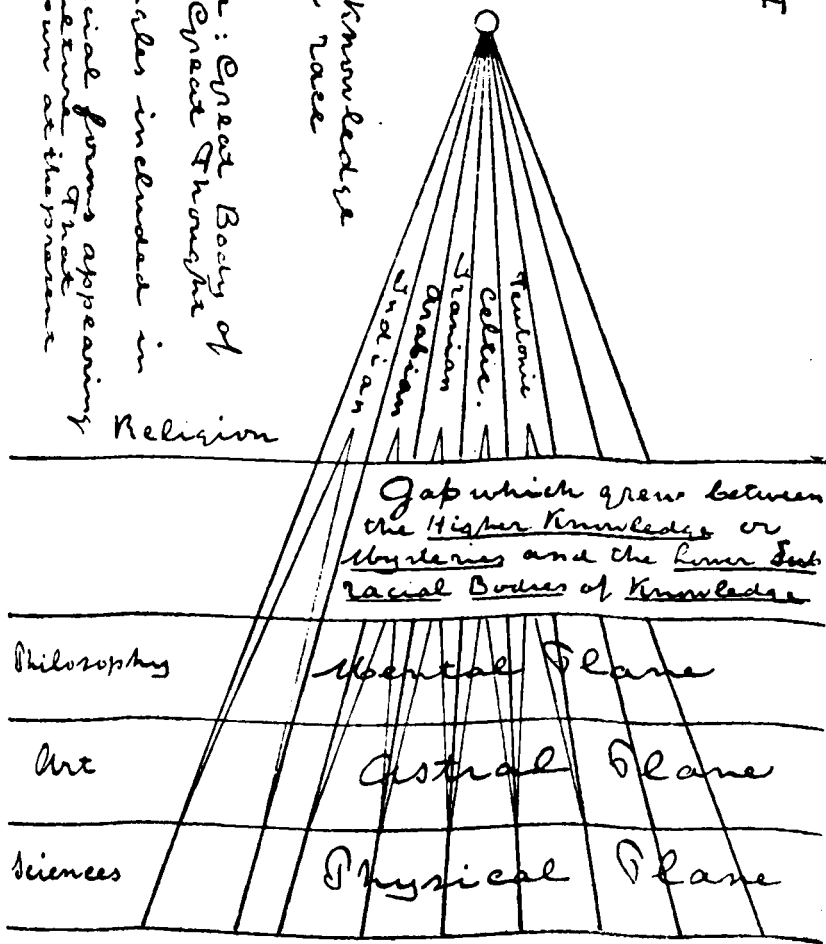 Knowledge
race
: Great Body of
Great Thought
ales included in
cial forms appearing
That
own at the present
Indian
Arabian
Iranian
Celtic.
Teutonic
Religion
Gap which grew between
the Higher Knowledge or
Mysteries and the Lower Sub
racial Bodies of Knowledge
Philosophy
Mental Plane
Art
Astral Plane
Sciences
Physical Plane